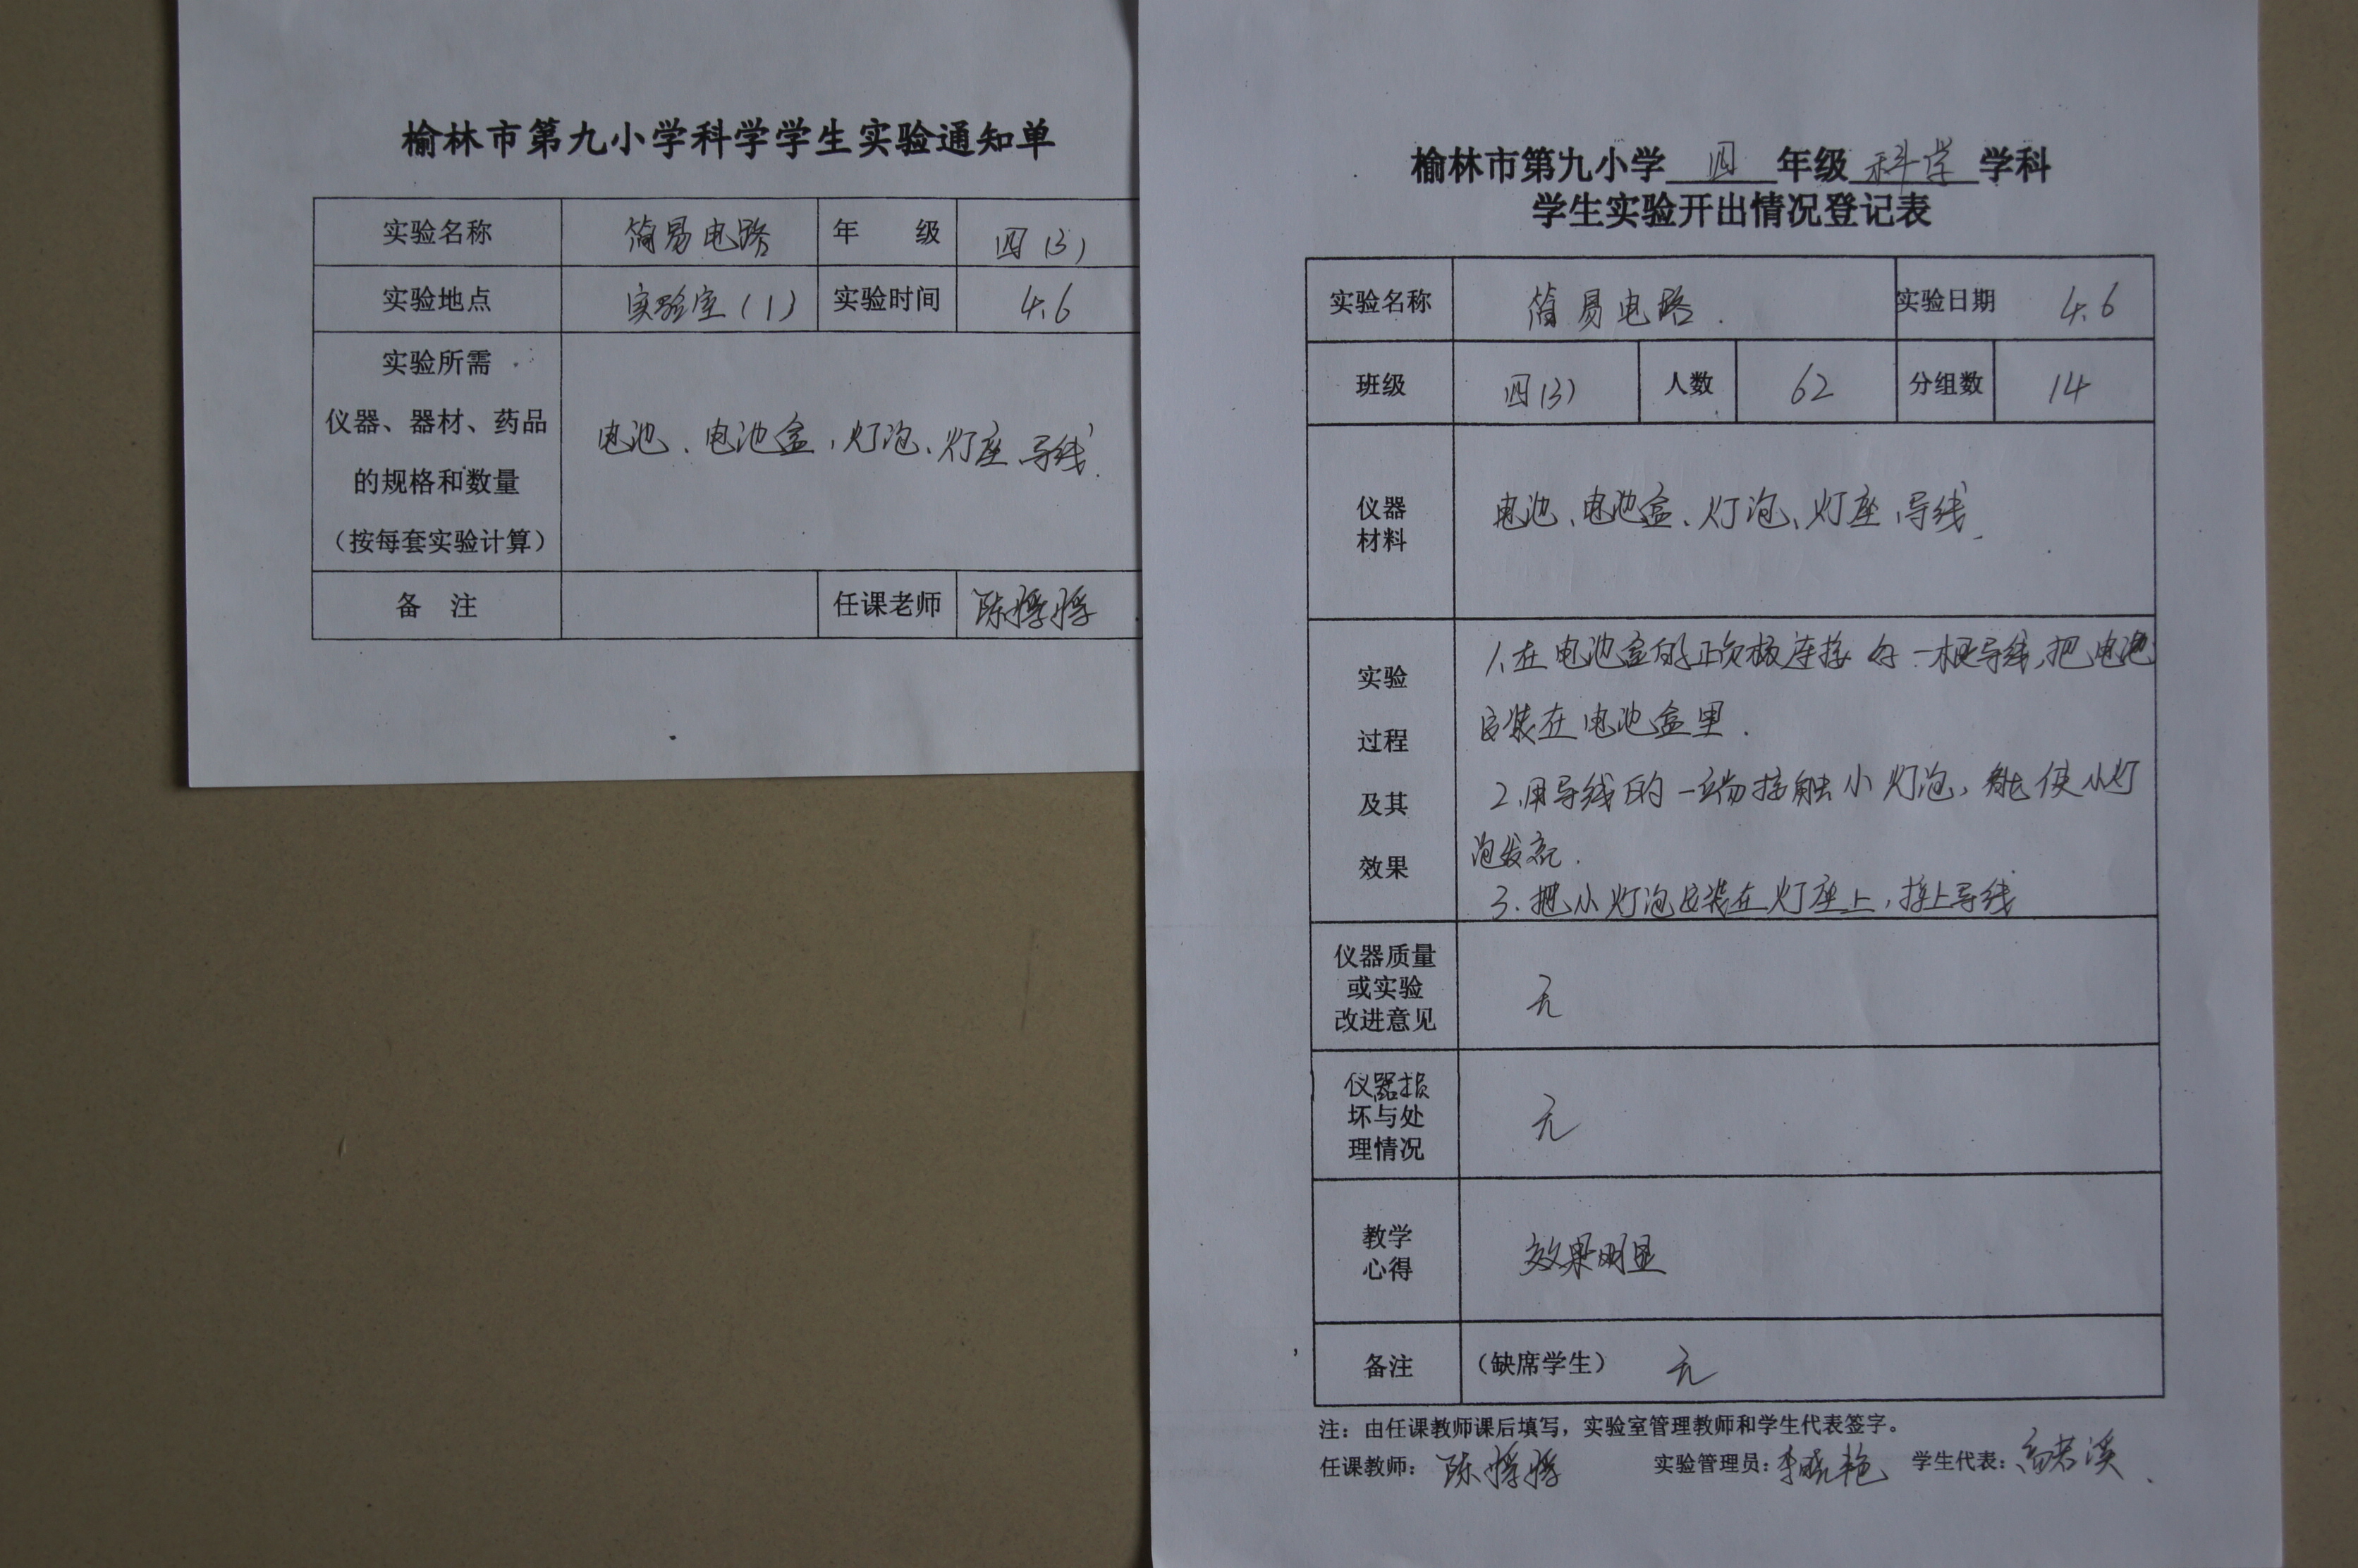 榆林市第九小学科学学生实验通知单
实验名称 简易电路 年 级 四(3)
实验地点 实验室(1) 实验时间 4.6
实验所需
仪器、器材、药品
的规格和数量
(按每套实验计算)
电池、电池盒,灯泡、灯座、导线.
备 注 任课老师 陈
榆林市第九小学 四 年级 科学 学科
学生实验开出情况登记表
实验名称 简易电路. 实验日期 4.6
班级 四(3) 人数 62 分组数 14
仪器
材料
电池、电池盒、灯泡、灯座、导线.
实验
过程
及其
效果
1.在电池盒的正负极连接好一根导线,把电池
安装在电池盒里.
2.用导线的一端接触小灯泡,能使小灯
泡发亮.
3.把小灯泡安装在灯座上,接上导线
仪器质量
或实验
改进意见
无
仪器损
坏与处
理情况
无
教学
心得
效果明显
备注 (缺席学生) 无
注:由任课教师课后填写,实验室管理教师和学生代表签字。
任课教师: 陈 实验管理员: 李晓艳 学生代表: 高若溪.